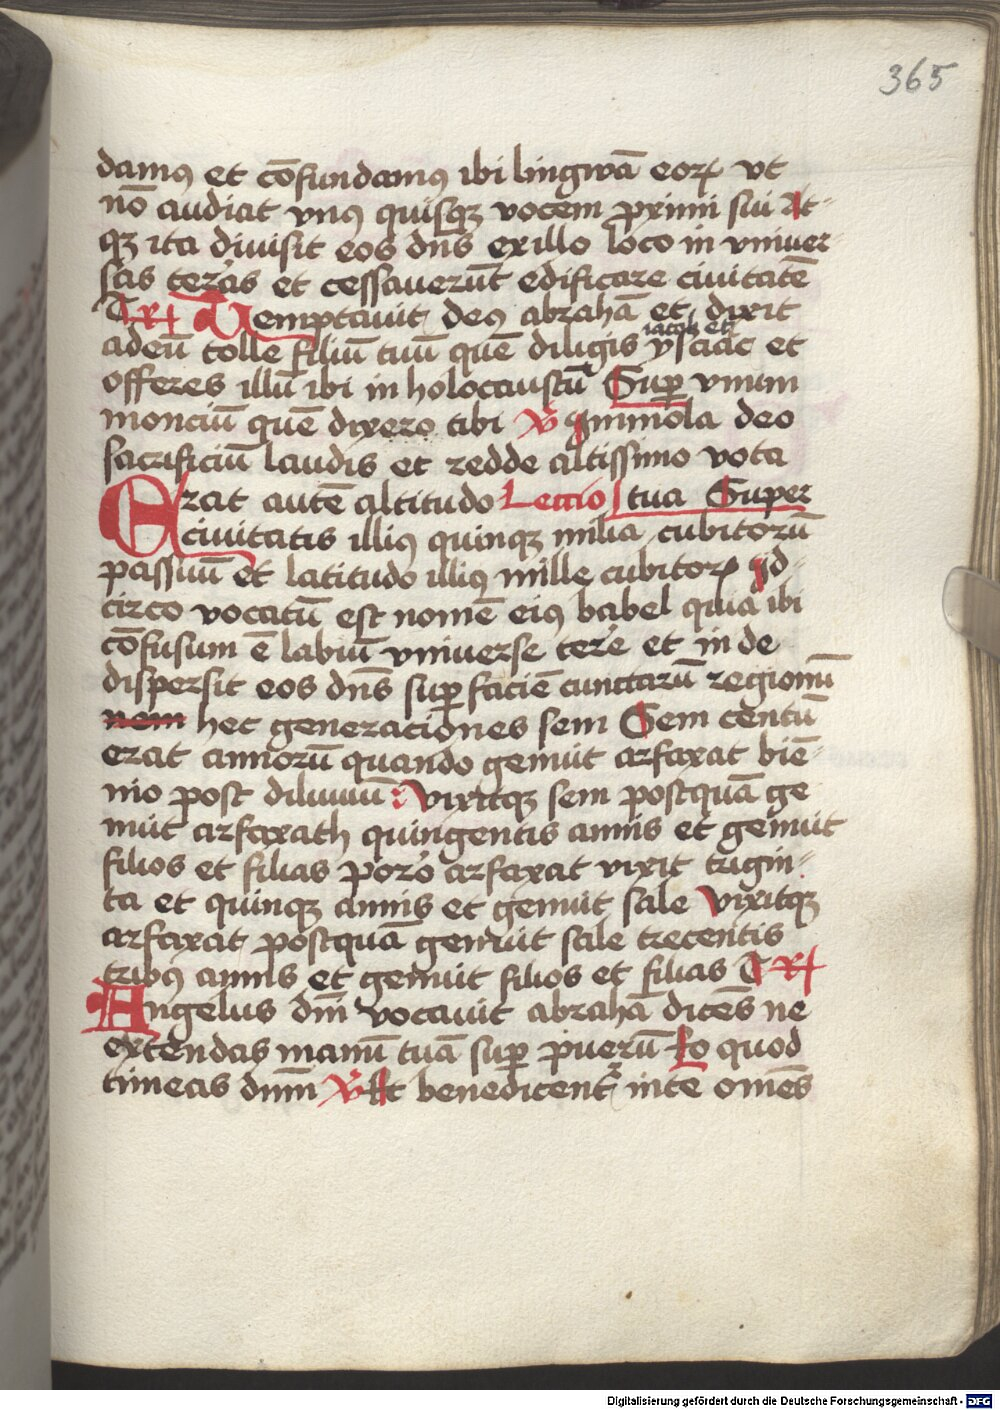 365
damꝰ et cōfundamꝰ ibi lingwā eorꝝ vt
nō audiat vnꝰ quisqꝫ vocem ꝓximi sui At-
qꝫ ita diuisit eos dn̄s exillo loco in vniuer-
sas teras et cessauerūt edificare ciuitatē
Temptauit deꝰ abrahā et dixit
iacob et
adeū tolle filiū tuū quē diligis ysaac et
offeres illū ibi in holocaustū Suꝑ vnum
monciū quē dixero tibi ℣ Immola deo
sacrificiū laudis et redde altissimo vota
Erat autē altitudo Leccio tua Super
ciuitatis illiꝰ quinqꝫ milia cubitorū
passuū et latitudo illiꝰ mille cubitorꝝ Id-
circo vocatū est nomē eiꝰ babel quia ibi
cōfusum ē labiū vniuerse tere et in de
dispersit eos dn̄s suꝑ faciē cunctarū regionū
nem hec generaciones sem Sem centū
erat annorū quando genuit arfaxat biē-
nio post diluuiū : vixitqꝫ sem postquā ge
nuit arfaxath quingentis annis et genuit
filios et filias poro arfaxat vixit trigin-
ta et quinqꝫ annis et genuit sale vixitqꝫ
arfaxat postquā genuit sale trecentis
tribꝰ annis et genuit filios et filias
Angelus dn̄i vocauit abrahā dicēs ne
extendas manū tuā suꝑ puerū Eo quod
timeas dn̄m ℣ Et benedicent inte omēs
Digitalisierung gefördert durch die Deutsche Forschungsgemeinschaft - DFG